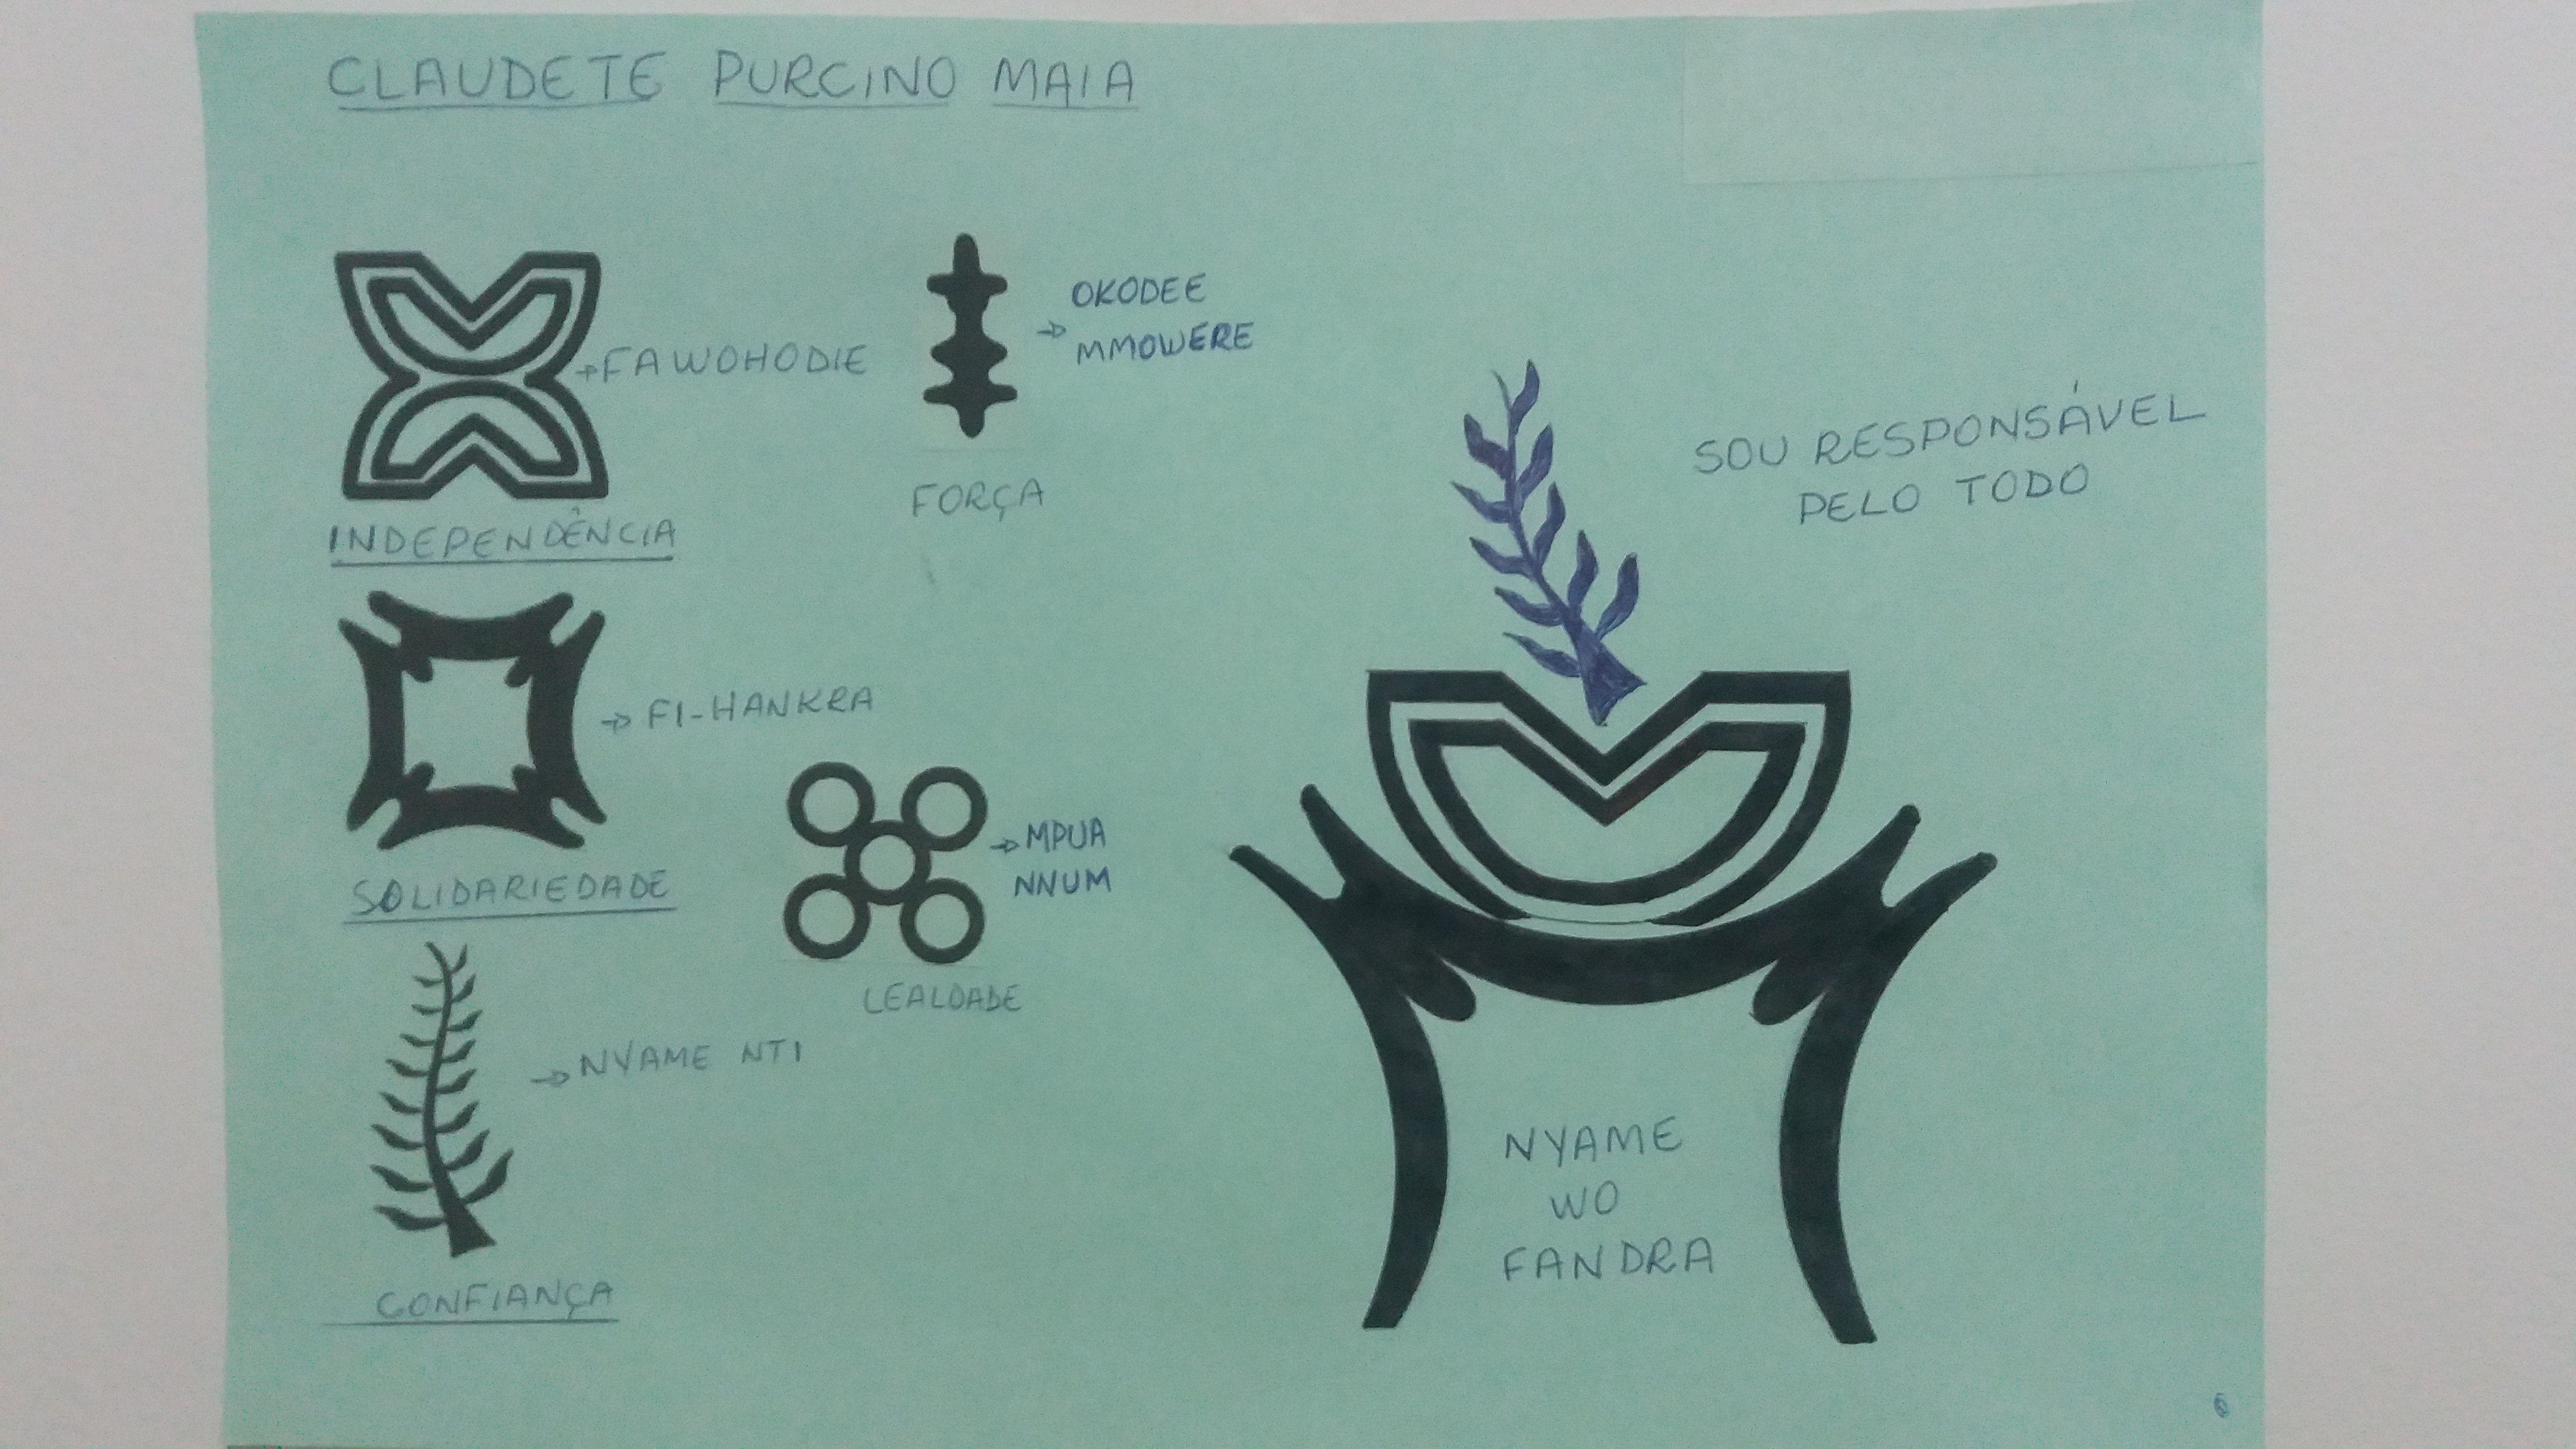 CLAUDETE PURCINO MAIA
FAWOHODIE
INDEPENDÊNCIA
OKODEE
MMOWERE
FORÇA
FI-HANKRA
SOLIDARIEDADE
MPUA
NNUM
LEALDADE
NYAME NTI
CONFIANÇA
SOU RESPONSÁVEL
PELO TODO
NYAME
WO
FANDRA